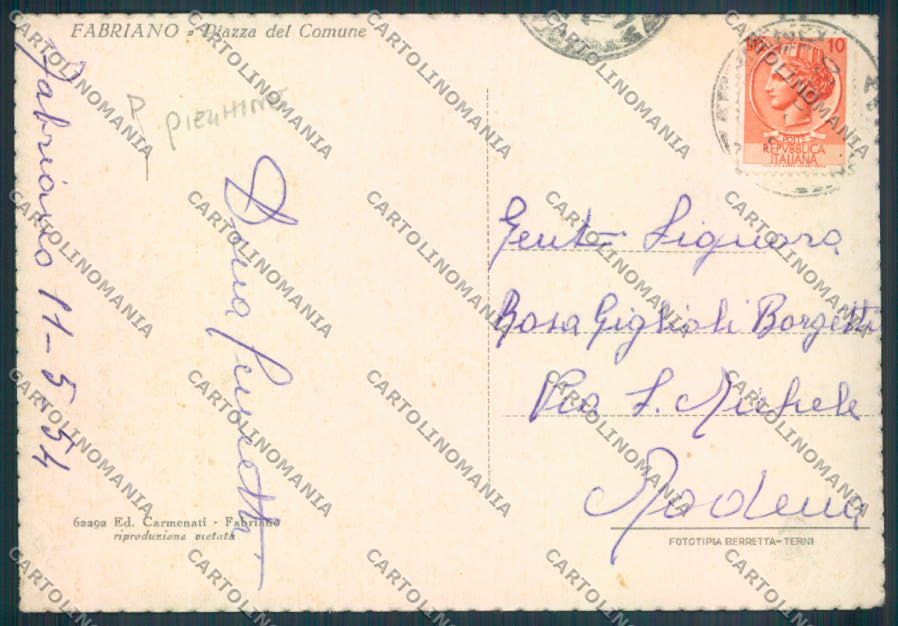 FABRIANO - Piazza del Comune
10
POSTE
REPVBBLICA
ITALIANA
Fabriano 11-5-54
P
Dina
Gent. Signora
Rosa Giglioli Borgetti
Via S. Michele
Modena
62292 Ed. Carmenati - Fabriano
riproduzione vietata
FOTOTIPIA BERRETTA-TERNI
CARTOLINOMANIA